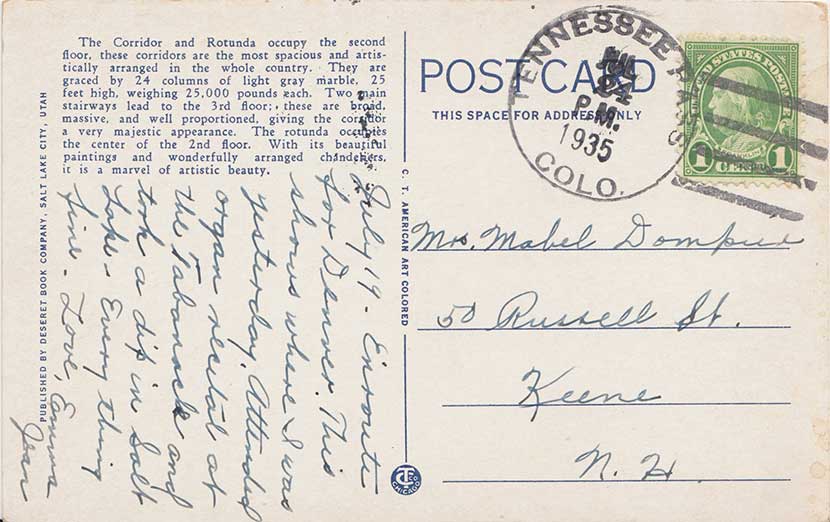 The Corridor and Rotunda occupy the second
floor, these corridors are the most spacious and artis-
tically arranged in the whole country. They are
graced by 24 columns of light gray marble, 25
feet high, weighing 25,000 pounds each. Two main
stairways lead to the 3rd floor; these are broad,
massive, and well proportioned, giving the corridor
a very majestic appearance. The rotunda occupies
the center of the 2nd floor. With its beautiful
paintings and wonderfully arranged chandeliers,
it is a marvel of artistic beauty.
PUBLISHED BY DESERET BOOK COMPANY, SALT LAKE CITY, UTAH
July 19 - Enroute
for Denver. This
shows where I was
yesterday. Attended
organ recital at
the Tabanacle and
took a dip in Salt
Lake - Everything
fine - Love, Emma
Jean
C. T. AMERICAN ART COLORED
CT
CHICAGO
POST CARD
THIS SPACE FOR ADDRESS ONLY
TENNESSEE PASS
24
P.M.
1935
COLO.
UNITED STATES POSTAGE
FRANKLIN
1 CENT 1
Mrs. Mabel
50 Russell St.
Keene
N. H.